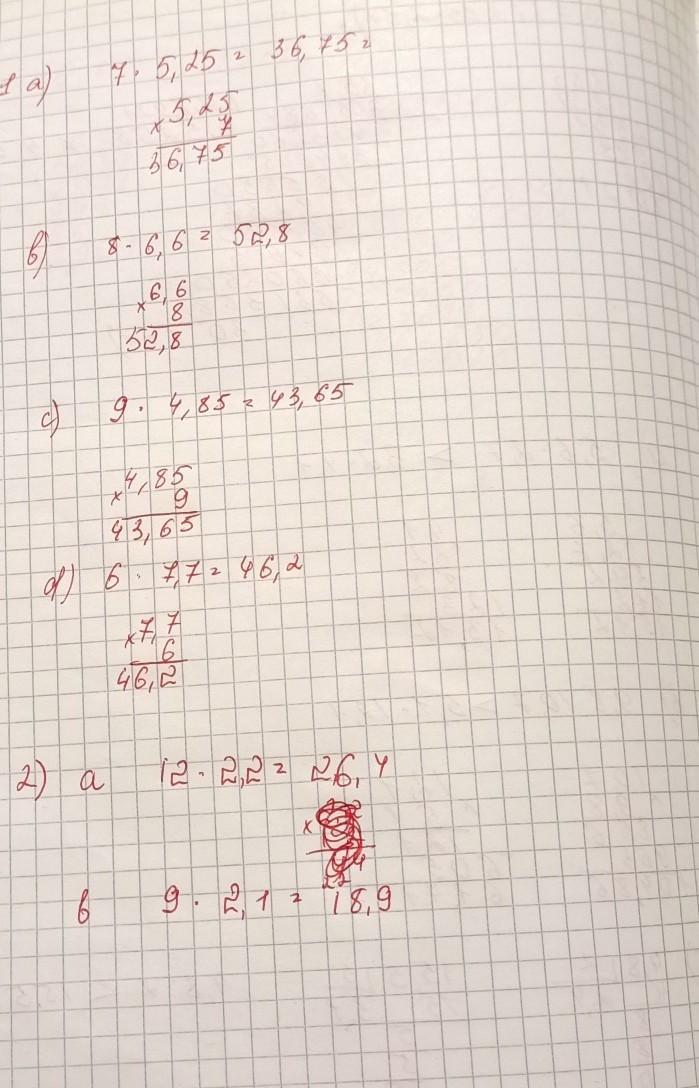 1 a) 7 · 5,25 = 36,75 =
× 5,25
7
36,75
b) 8 · 6,6 = 52,8
× 6,6
8
52,8
c) 9 · 4,85 = 43,65
× 4,85
9
43,65
d) 6 · 7,7 = 46,2
× 7,7
6
46,2
2) a 12 · 2,2 = 26,4
×
b 9 · 2,1 = 18,9